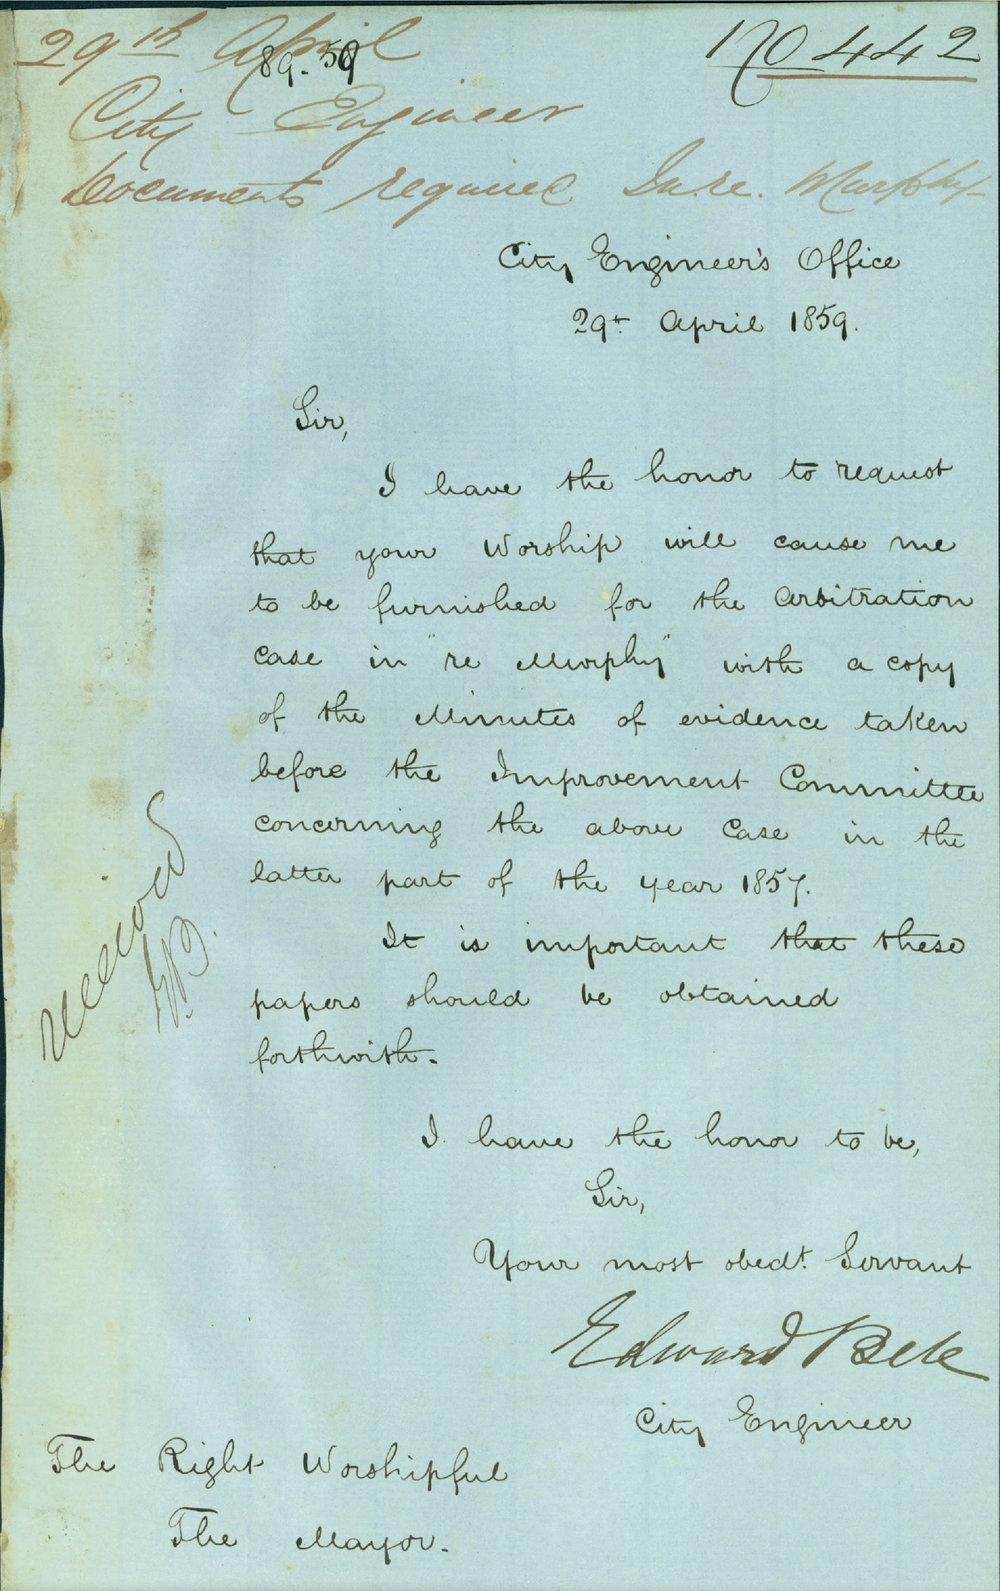 29th April
89. 59
No 442
City Engineer
Documents required In re. Murphy
City Engineer's Office
29th April 1859.
Sir,
I have the honor to request
that your Worship will cause me
to be furnished for the Arbitration
case in "re Murphy" with a copy
of the Minutes of evidence taken
before the Improvement Committee
concerning the above Case in the
latter part of the year 1857.
It is important that these
papers should be obtained
forthwith.
received
I have the honor to be,
Sir,
Your most obedt. Servant
Edward Bell
City Engineer
The Right Worshipful
The Mayor.